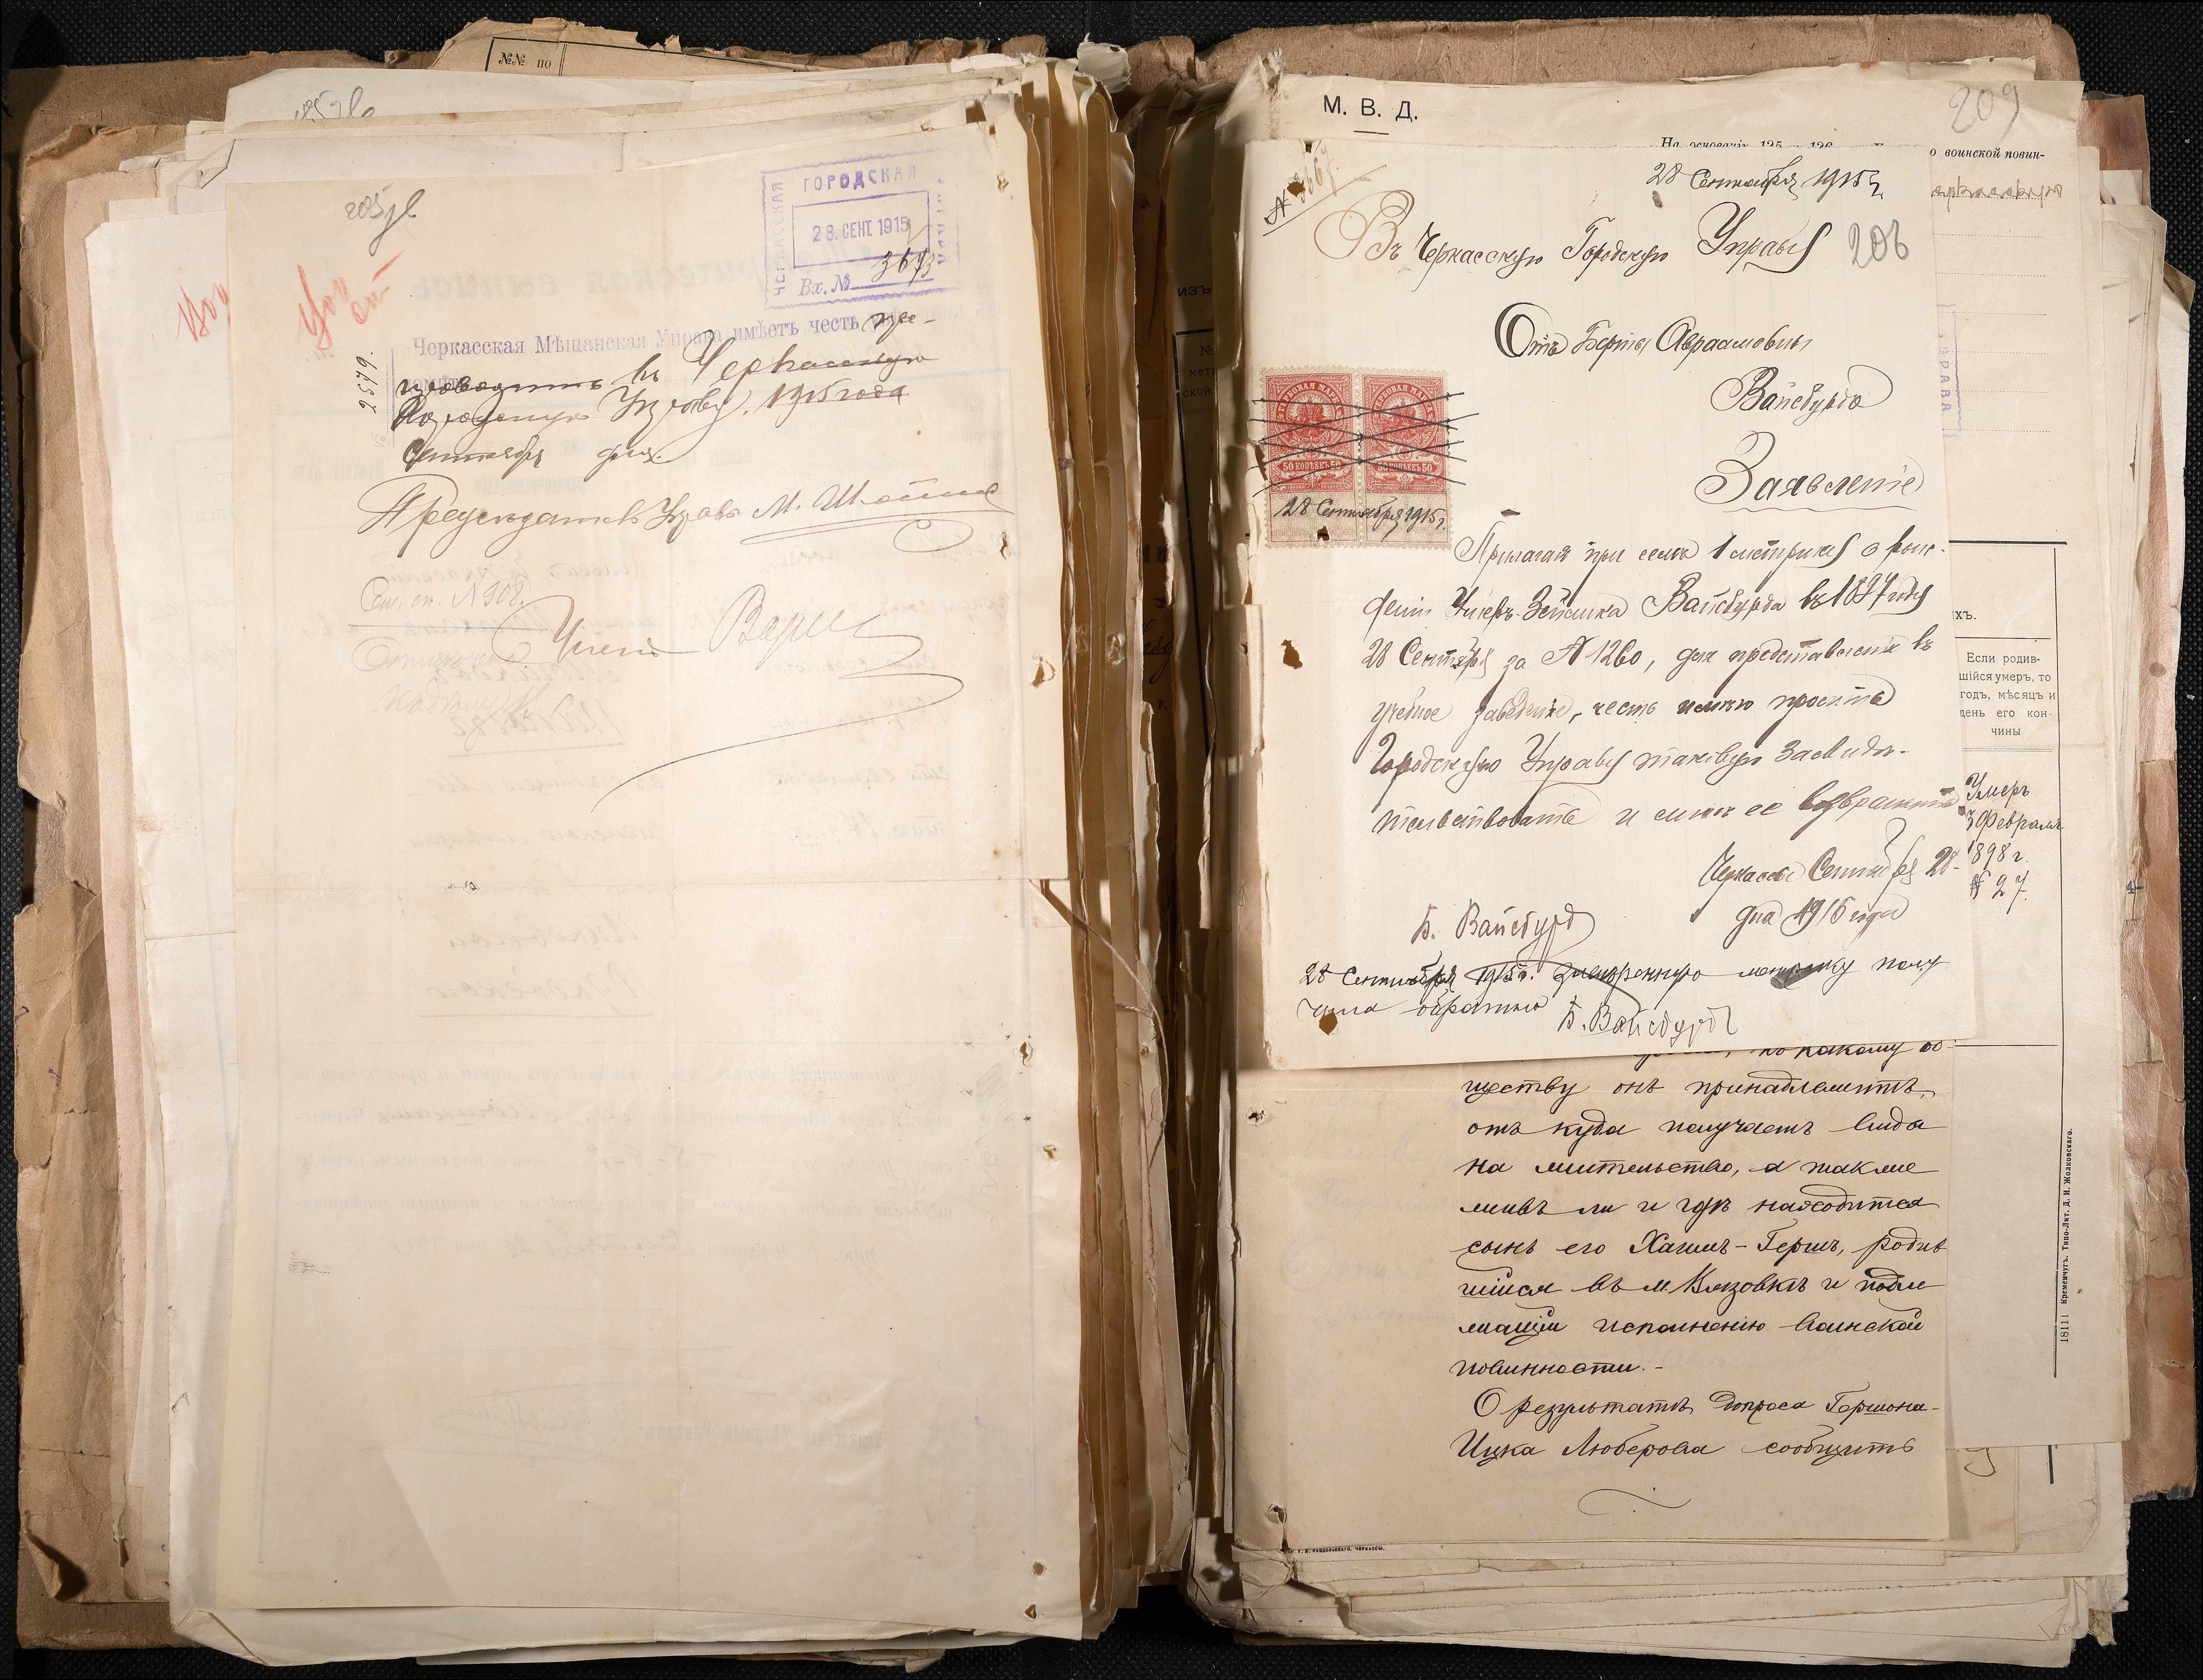 №№ по
205 об
ЧЕРКАССКАЯ
ГОРОДСКАЯ
28. СЕНТ. 1915
Вх. № 3673
Черкасская Мѣщанская Управа имѣетъ честь пре-
2579.
въ Черкасскую
Городскую Управу. 1915 года
Сентября дня.
Предсѣдатель Управы М.
№ 908.
Членъ
М. В. Д.
209
На основаніи 125 126
о воинской повин-
№ 3667.
28 Сентября 1915 г.
Въ Черкасскую Городскую Управу
206
Отъ Берты Авраамовны
Вайсбурдъ
Заявленіе
50 КОПѢЕКЪ 50
50 КОПѢЕКЪ 50
28 Сентября 1915 г.
Прилагая при семъ 1 метрику о рож-
деніи Вайсбурда въ 1897 году
28 Сентября за № 1260, для представленія въ
учебное заведеніе, честь имѣю просить
Городскую Управу таковую Засвидѣ-
тельствовать и мнѣ ее возвратить
Черкассы Сентября 28
дня 1915 года
Б. Вайсбурд
28 Сентября 1915 г. метрику полу
чила обратно Б. Вайсбурдъ
УПРАВА
ХЪ.
Если родив-
шійся умеръ, то
годъ, мѣсяцъ и
день его кон-
чины
Умеръ
3 Февраля
1898 г.
№ 27.
къ какому об-
ществу онъ принадлежитъ,
отъ куда получаетъ вида
на жительство, а также
живъ ли и гдѣ находится
сынъ его Хаимъ-Гершъ, родив
шійся въ м. Вязовкѣ и подле
жащій исполненію воинской
повинности.-
О результатѣ допроса Гершона-
Ицка Люберова сообщить
18111 Кременчугъ. Типо-Лит. Д. И. Жолковскаго.